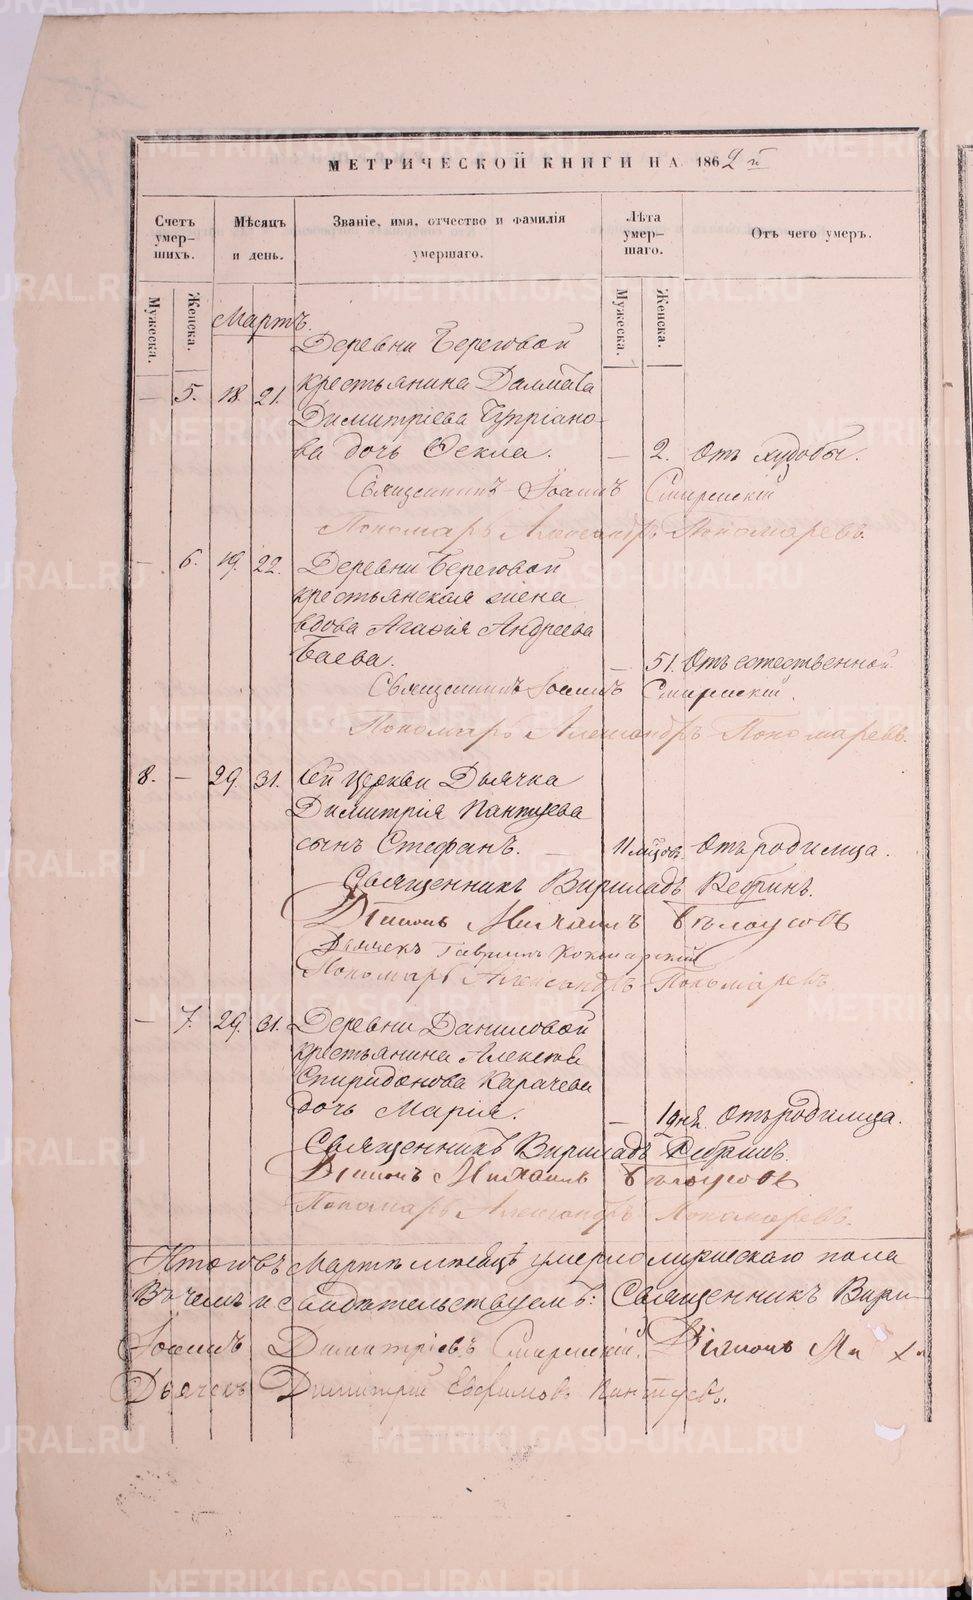 МЕТРИЧЕСКОЙ КНИГИ НА 1862 й
Счетъ умер- шихъ.
Мѣсяцъ и день.
Званіе, имя, отчество и фамилія умершаго.
Лѣта умер- шаго.
Отъ чего умеръ.
Мужеска. Женска. Мужеска. Женска.
Мартъ.
Деревни Береговой
— 5. 18. 21. крестьянина Далмата
Димитріева Чупріано-
ва дочь Ѳекла. — 2. Отъ худобы.
Священникъ Іоаннъ Смирнскій
Пономарь Александръ Пономаревъ.
— 6. 19. 22. Деревни Береговой
крестьянская жена
вдова Агафія Андреева
Баева. — 51. Отъ естественной
Священникъ Іоаннъ Смирнскій.
Пономарь Александръ Пономаревъ.
8. — 29. 31. Сей церкви Дьячка
Димитрія Пантуева
сынъ Стефанъ. — 11 мѣсяцов. Отъ родимца.
Священникъ Вириладъ
Діаконъ Михаилъ Бѣлоусовъ
Дьячекъ Гавріилъ
Пономарь Александръ Пономаревъ.
— 7. 29. 31. Деревни Даниловой
крестьянина Алексѣя
Спиридонова Карачева
дочь Марія. — 1 дня. Отъ родимца.
Священникъ Вириладъ
Діаконъ Михаилъ Бѣлоусовъ
Пономарь Александръ Пономаревъ.
Итого въ Мартѣ мѣсяцѣ умерло мужескаго пола
Въ чемъ и свидѣтельствуемъ: Священникъ Вири-
Іоаннъ Димитріевъ Смирнскій. Діаконъ Мих
Дьячекъ Димитрій Евфимовъ Пантуевъ.
METRIKI.GASO-URAL.RU